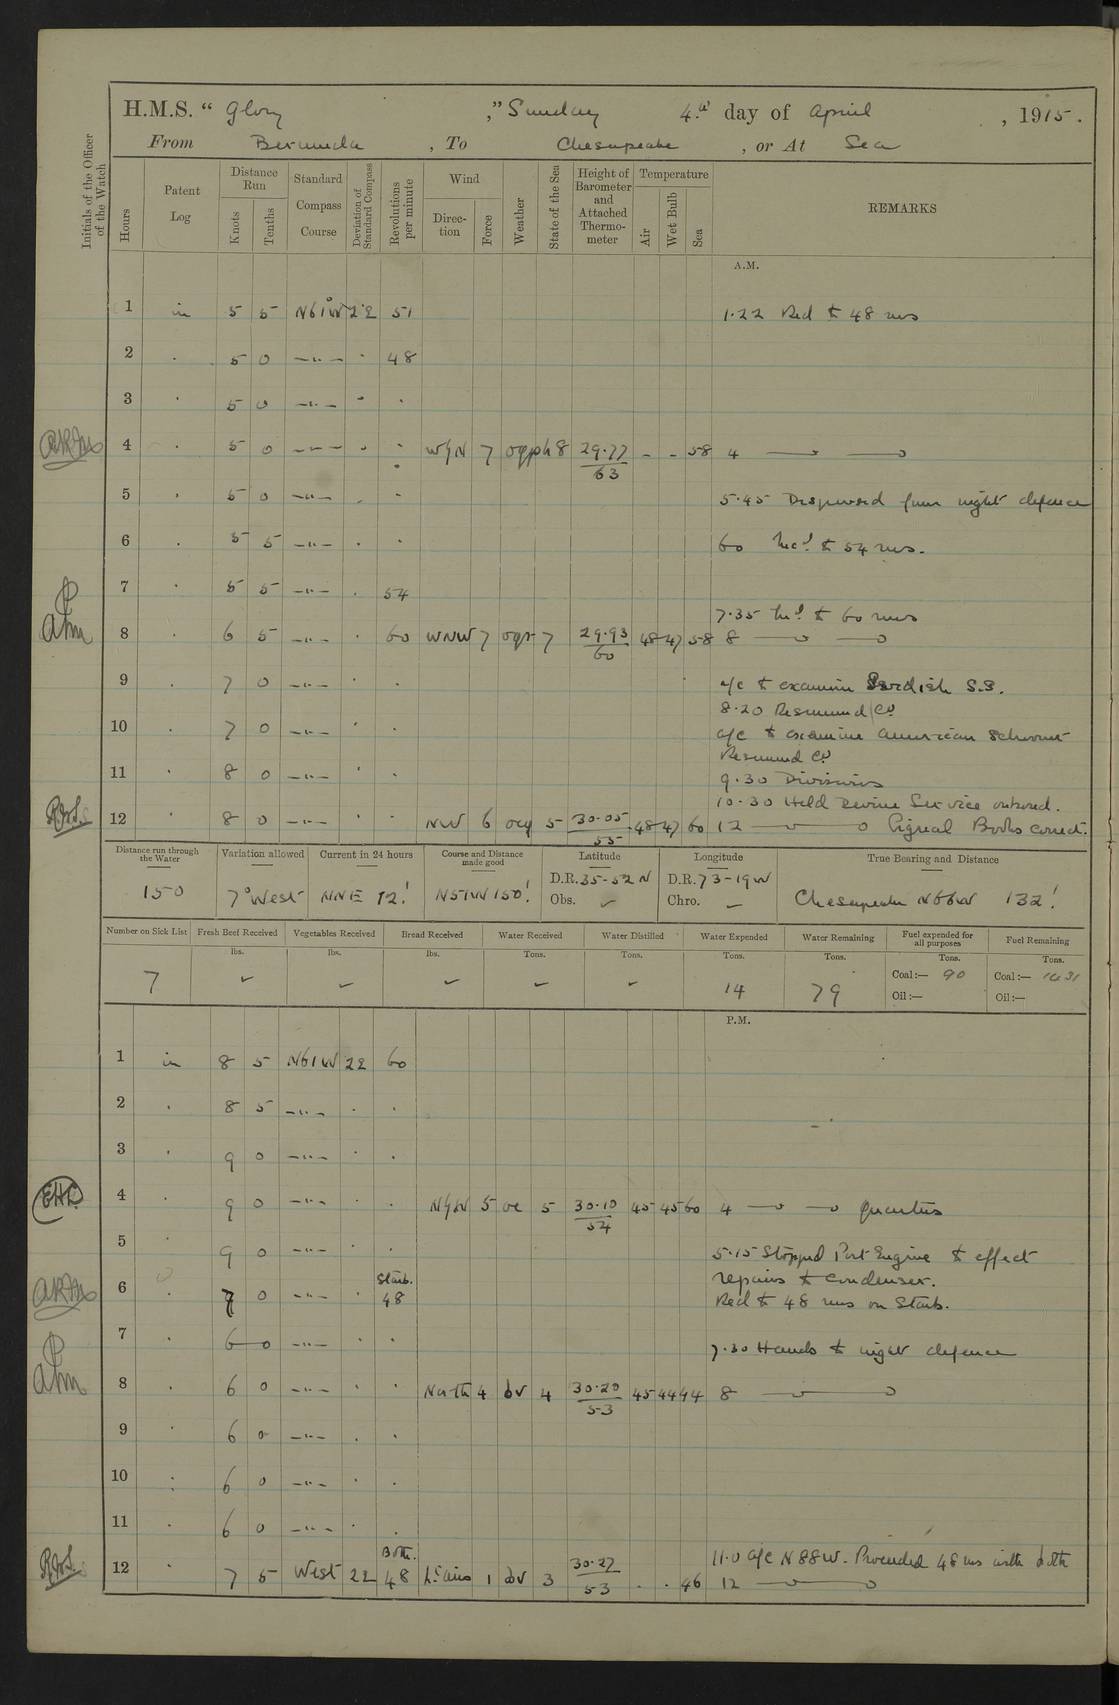 H.M.S. “ Glory ,” Sunday 4th day of April , 1915.
From Bermuda , To Chesapeake , or At Sea
Initials of the Officer of the Watch
Hours
Patent Log
Distance Run
Knots
Tenths
Standard Compass Course
Deviation of Standard Compass
Revolutions per minute
Wind
Direction
Force
Weather
State of the Sea
Height of Barometer and Attached Thermometer
Temperature
Air
Wet Bulb
Sea
REMARKS
A.M.
1 in 5 5 N61°W 2.2 51 1.22 Red to 48 revs
2 . 5 0 —"— . 48
3 . 5 0 —"— . .
4 . 5 0 —"— . . WbyN 7 oqph 8 29.77/63 - - 58 4
5 . 5 0 —"— . . 5.45 Dispersed from night defence
6 . 5 5 —"— . . 60 Incd to 54 revs.
7 . 5 5 —"— . 54
7.35 Incd to 60 revs
8 . 6 5 —"— . 60 WNW 7 oqr 7 29.93/60 48 47 58 8
9 . 7 0 —"— . . a/c to examine Swedish S.S.
8.20 Resumed Co
10 . 7 0 —"— . . a/c to examine American Schooner
Resumed Co
11 . 8 0 —"— . . 9.30 Divisions
10.30 Held Divine Service onboard.
12 . 8 0 —"— . . NW 6 ocq 5 30.05/55 48 47 60 12 Signal Books correct.
Distance run through the Water
Variation allowed
Current in 24 hours
Course and Distance made good
Latitude
Longitude
True Bearing and Distance
150 7° West NNE 12' N51W 150' D.R. 35-52 N D.R. 73-19 W Chesapeake N66W 132'
Obs. ✓ Chro. –
Number on Sick List
Fresh Beef Received
Vegetables Received
Bread Received
Water Received
Water Distilled
Water Expended
Water Remaining
Fuel expended for all purposes
Fuel Remaining
lbs. lbs. lbs. Tons. Tons. Tons. Tons. Tons. Tons.
7 ✓ ✓ ✓ ✓ ✓ 14 79 Coal:— 90 Coal:— 1431
Oil:— Oil:—
P.M.
1 in 8 5 N61W 22 60
2 . 8 5 —"— . .
3 . 9 0 —"— . .
4 . 9 0 —"— . . NbyW 5 oc 5 30.10/54 45 45 60 4 Quarters
5 . 9 0 —"— . . 5.15 Stopped Port Engine to effect
repairs to Condenser.
6 . 7 0 —"— . Starb. 48 Red to 48 revs on Starb.
7 . 6 0 —"— . . 7.30 Hands to night defence
8 . 6 0 —"— . . North 4 bv 4 30.20/53 45 44 44 8
9 . 6 0 —"— . .
10 : 6 0 —"— . .
11 . 6 0 —"— . .
11.0 a/c N88W. Proceeded 48 revs with both
12 . 7 5 West 22 Both. 48 Lt airs 1 bv 3 30.27/53 . . 46 12